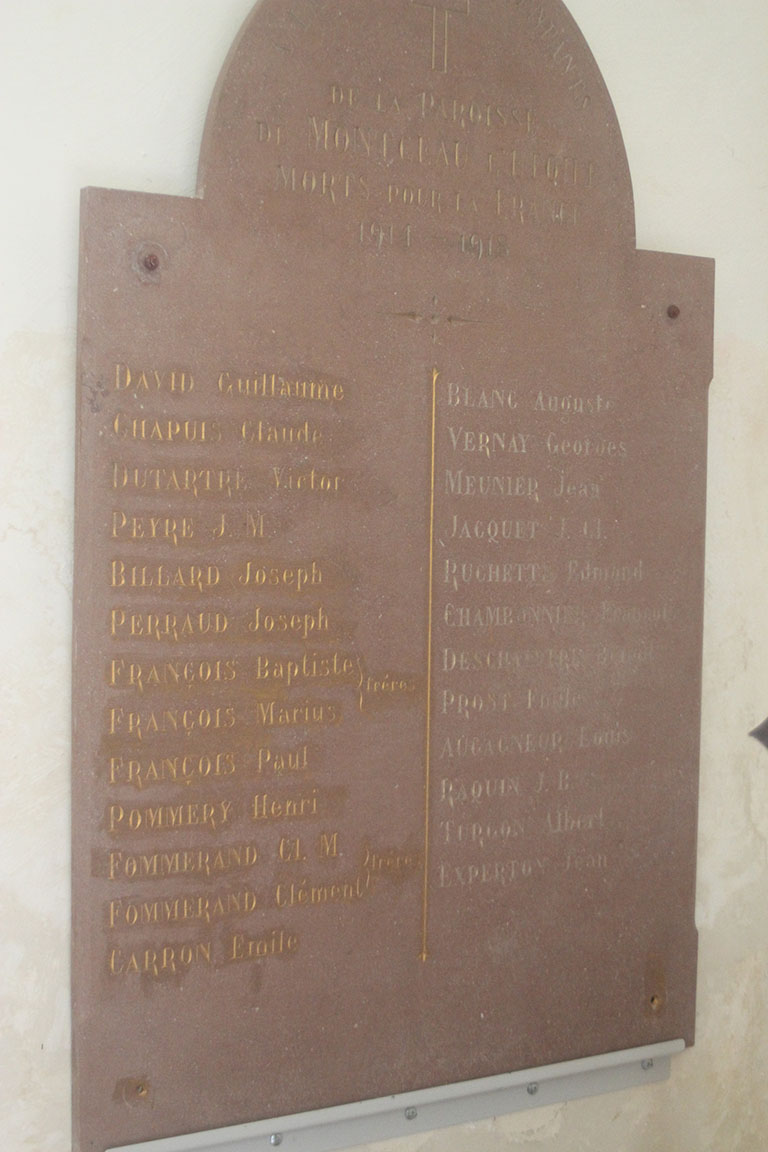 ENFANTS
DE LA PAROISSE
DE MONTCEAU L'ETOILE
MORTS POUR LA FRANCE
1914 — 1918
DAVID Guillaume
CHAPUIS Claude
DUTARTRE Victor
PEYRE J. M.
BILLARD Joseph
PERRAUD Joseph
FRANÇOIS Baptiste
frères
FRANÇOIS Marius
FRANÇOIS Paul
POMMERY Henri
FOMMERAND Cl. M.
frères
FOMMERAND Clément
CARRON Emile
BLANC Auguste
VERNAY Georges
MEUNIER Jean
JACQUET J. Cl.
RUCHETTE Edmond
CHAMPONNIER François
PROST Emile
AUGAGNEUR Louis
RAQUIN J. B.
TURGON Albert
EXPERTON Jean